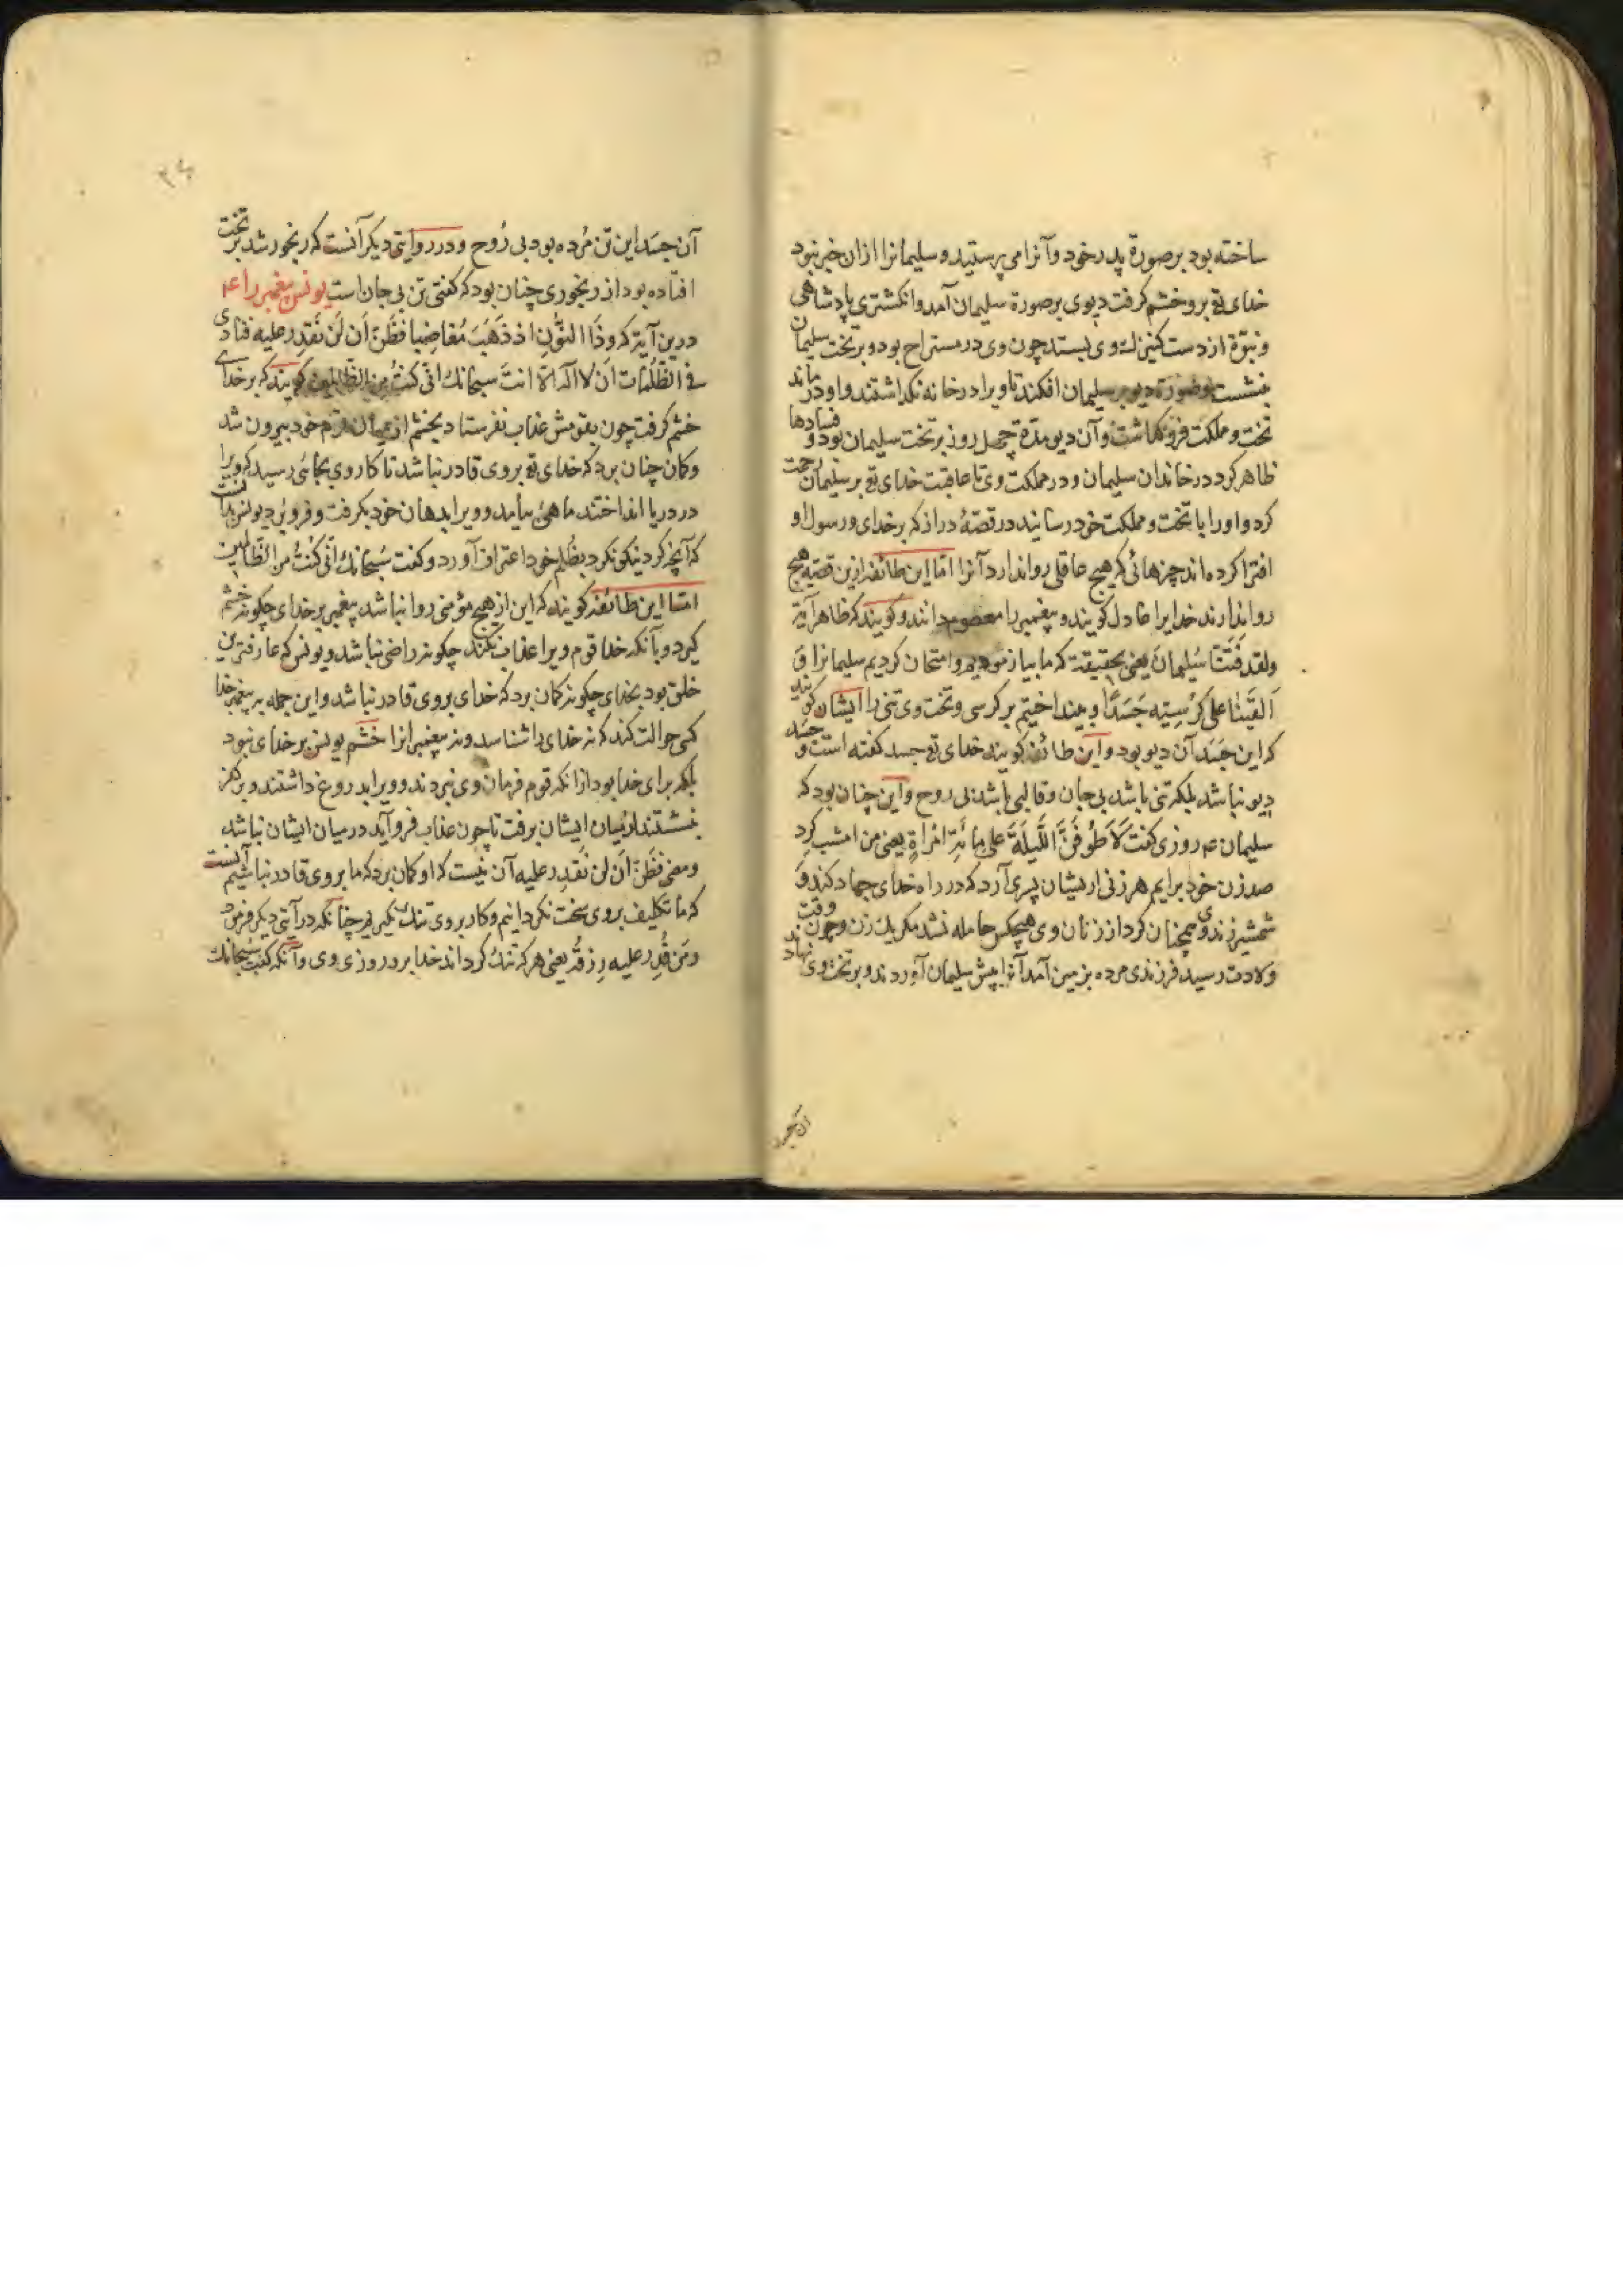 ساخته بود بر صورة پدر خود و آنرا می پرستید و سلیمانرا ازان خبر نبود
خدای تع بر و خشم گرفت دیوی بر صورة سلیمان آمد و انکشتری پادشاهی
و نبوّة از دست کنیزك وی بستد چون وی در مستراح بود و بر تخت سلیمان
بنشست و صورة دیو بر سلیمان افکند تا ویرا در خانه نکذاشتند و او در ماند
تخت و مملکت فرو کماشت و آن دیو مدّة چهل روز بر تخت سلیمان بود و فسادها
ظاهر کرد در خاندان سلیمان و در مملکت وی تا عاقبت خدای تع بر سلیمان رحمت
کرد و اورا با تخت و مملکت خود رسانید در قصّهٔ دراز که بر خدای و رسول او
افترا کرده اند چیزهائی که هیچ عاقلی روا ندارد آنرا امّا این طائفه ازین قصّه هیچ
روا ندارند خدایرا عادل کویند و پیغمبر را معصوم دانند و کویند که ظاهر آیة
ولقد فَتَنّا سُلیمانَ یعنی بحقیقت که ما بیازمودیم و امتحان کردیم سلیمانرا وَ
اَلقَینا علی کُرسِیّه جَسَدًا و بینداختیم بر کرسی و تخت وی تنی را ایشان کویند
که این جَسَد آن دیو بود و این طائفه کویند خدای تع جسد کفته است و جسد
دیو نباشد بلکه تنی باشد بی جان و قالبی باشد بی روح و این چنان بود که
سلیمان عم روزی کفت لَاَطُوفَنَّ اللَّیلَةَ علی مِائَةِ امْراةٍ یعنی من امشب کرد
صد زن خود برایم هر زنی ازیشان پسری آرد که در راه خدای جهاد کند وَ
شمشیر زند وی همچنان کرد از زنان وی هیچکس حامله نشد مکر یك زن و چون وقت
ولادت رسید فرزندی مرده بزمین آمد آنرا پیش سلیمان آوردند و بر تخت وی نهادند
آن جسد
۳۴
آن جسَد این تن مُرده بود بی رُوح و در روایتی دیکر آنست که رنجور شد بر تخت
افتاده بود از رنجوری چنان بود که کفتی تن بی جان است یونس پیغمبر را عم
درین آیة که وذَا النُّونِ اذ ذَهَبَ مُغاضِبا فظَنَّ اَن لَن نَقدِر علیه فنادی
فی الظُلُمات اَن لا اله الّا انتَ سبحانك انّی کنتُ من الظالمین کویند که بر خدای
خشم کرفت چون بقومش عذاب نفرستاد بخشم از میان قوم خود بیرون شد
و کمان چنان برد که خدای تع بر وی قادر نباشد تا کار وی بجائی رسید که ویرا
در دریا انداختند ماهئ بیامد و ویرا بدهان خود بکرفت و فرو برد یونس بدانست
که آنچه کرد نیکو نکرد بظُلم خود اعتراف آورد و کفت سُبحانك انّی کُنتُ من الظالمین
امّا این طائفه کویند که این از هیچ مؤمنی روا نباشد پیغمبر بر خدای چکونه خشم
کیرد و بآنکه خدا قوم ویرا عذاب نکند چکونه راضی نباشد و یونس که عارفترین
خلق بود بخدای چکونه کمان برد که خدای بر وی قادر نباشد و این جمله به پیغمبر خدا
کسی حوالت کند که نه خدای را شناسد و نه پیغمبرانرا خشم یونس بر خدای نبود
بلکه برای خدا بود ازانکه قوم فرمان وی نبردند و ویرا بدروغ داشتند و بر کفر
بنشستند از میان ایشان برفت تا چون عذاب فرو آید در میان ایشان نباشد
و معنی فظَنَّ اَن لن نَقدِر علیه آن نیست که او کمان برد که ما بر وی قادر نباشیم آنست
که ما تکلیف بر وی سخت نکردانیم و کار بر وی تنك نکیریم چنانکه در آیتی دیکر فرمود
ومَن قُدِر علیه رِزقُه یعنی هر که تنك کرداند خدا برو روزی وی و آنکه کفت سُبحانك